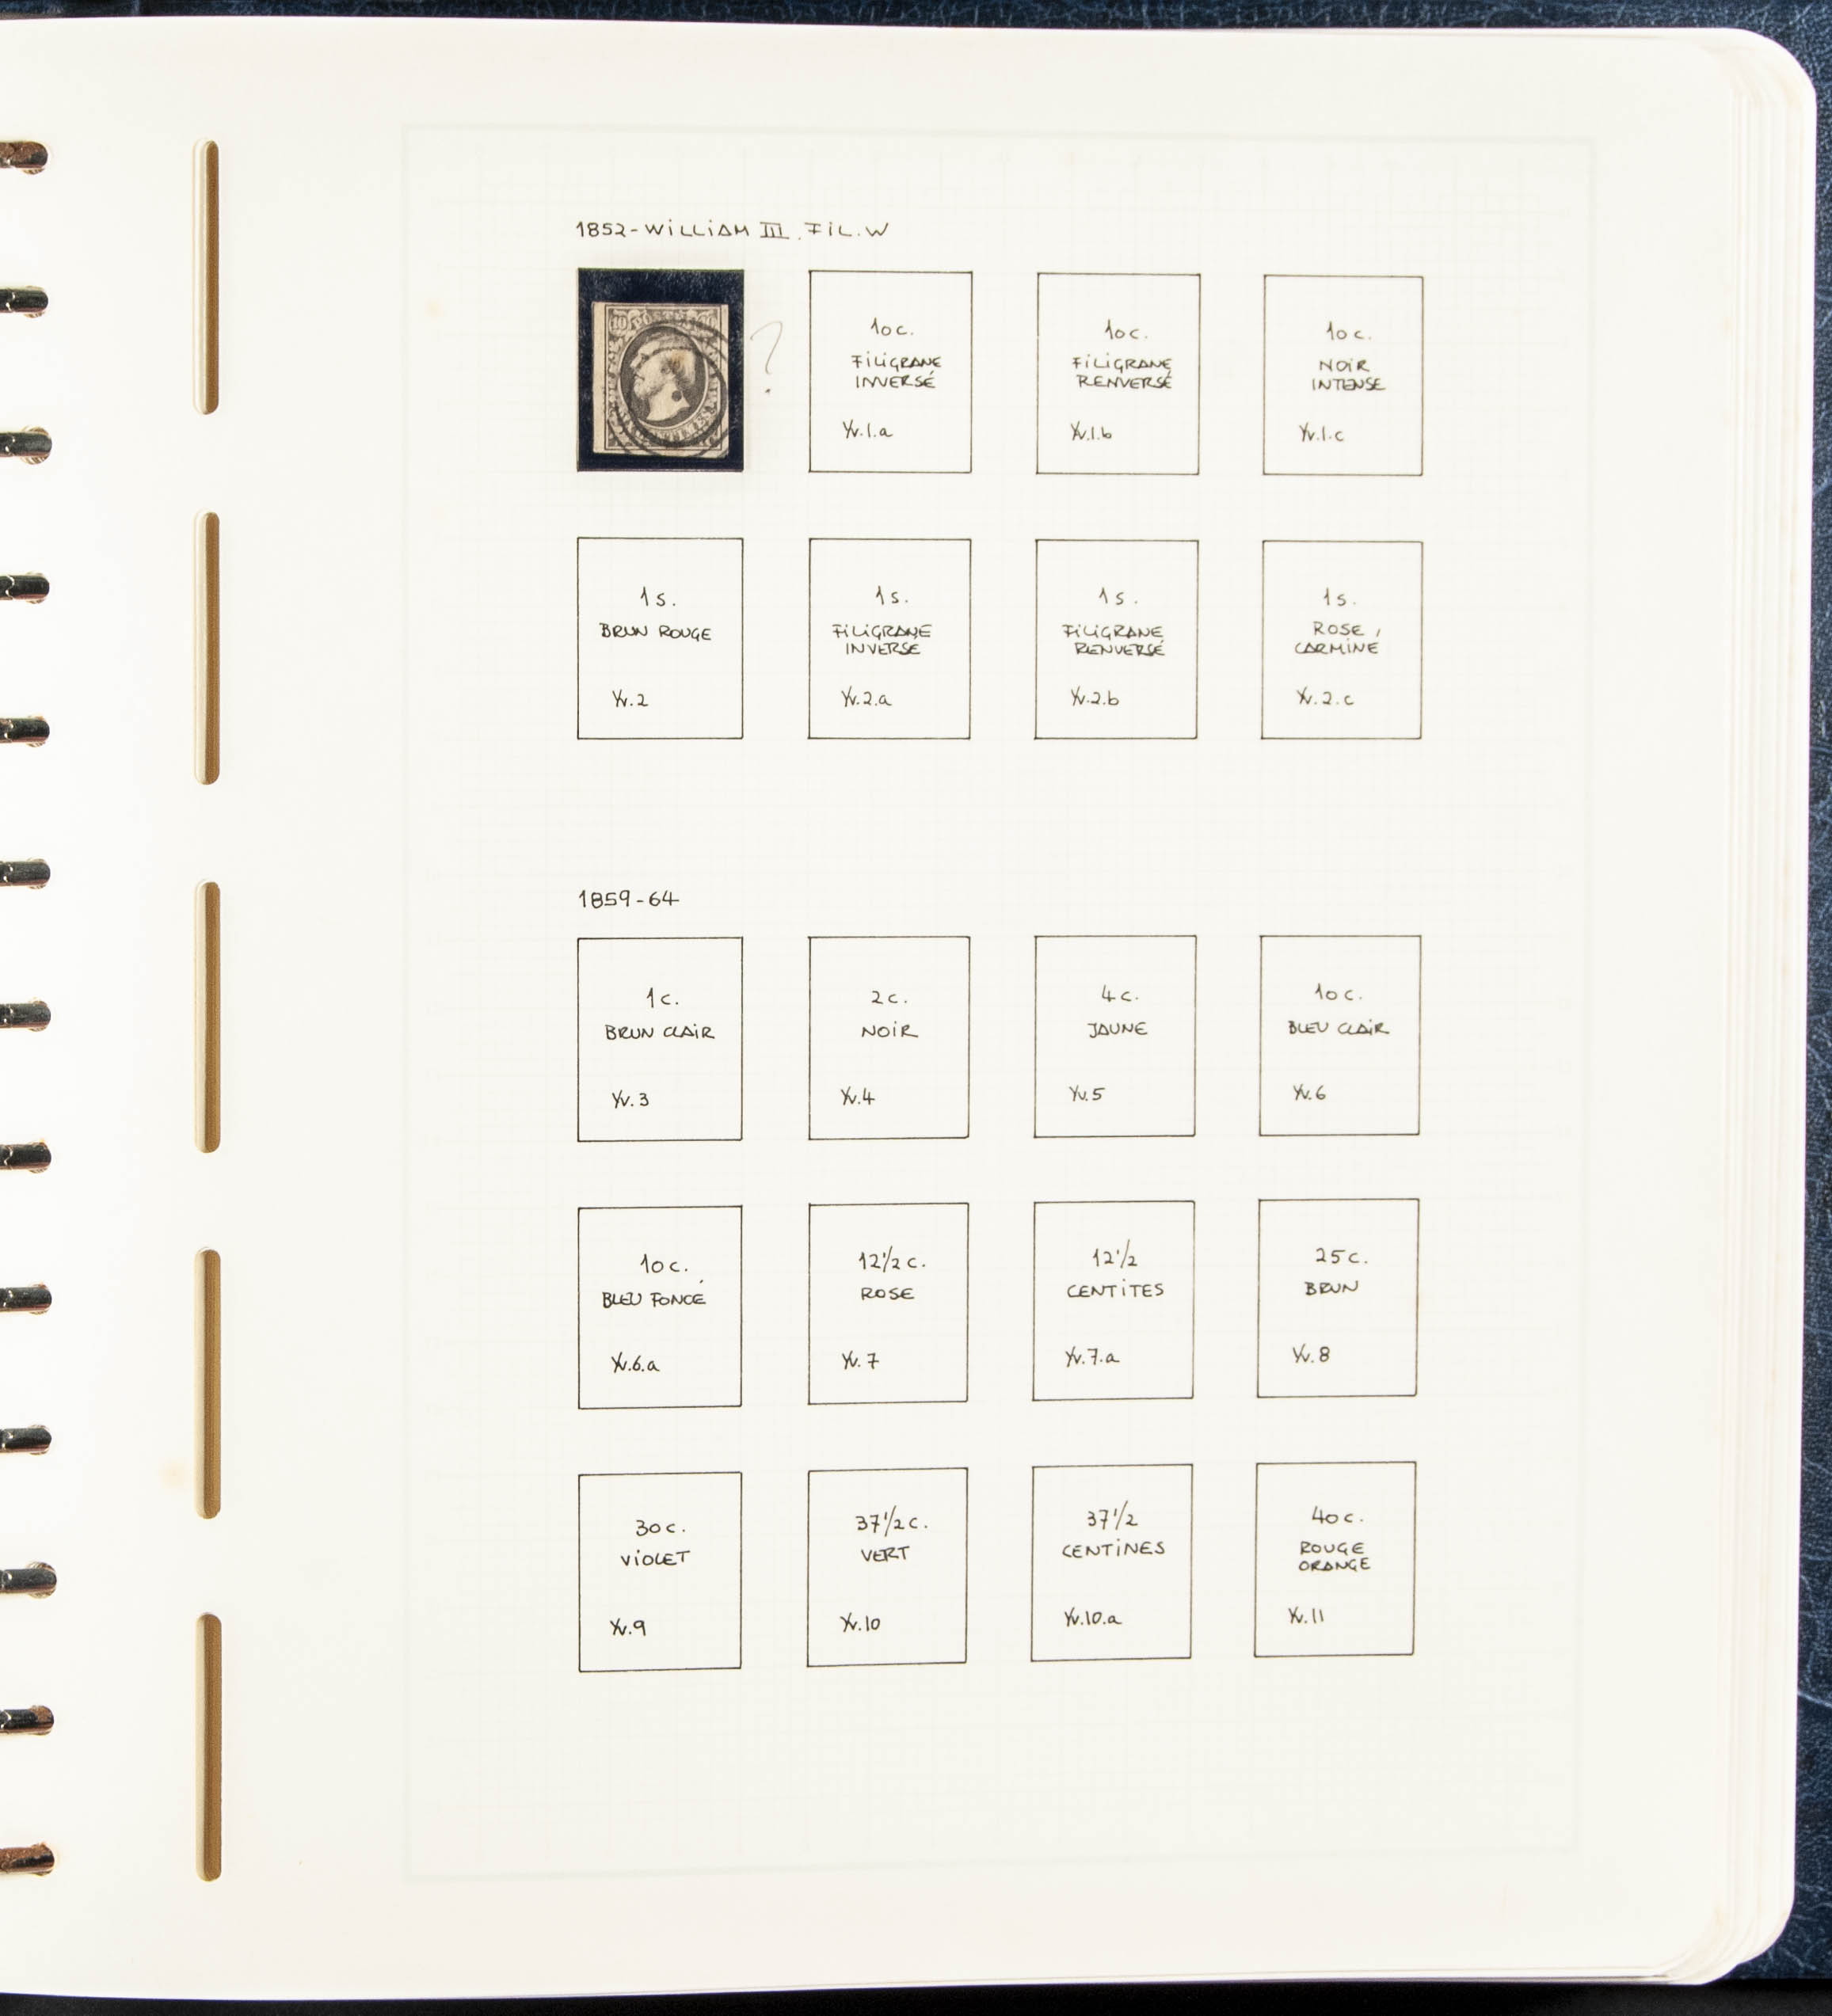 1852-WILLIAM III. FIL.W
10 POSTES
?
10c.
FILIGRANE
INVERSÉ
Yv.1.a
10c.
FILIGRANE
RENVERSÉ
Yv.1.b
10c.
NOIR
INTENSE
Yv.1.c
1s.
BRUN ROUGE
Yv.2
1s.
FILIGRANE
INVERSÉ
Yv.2.a
1s.
FILIGRANE
RENVERSÉ
Yv.2.b
1s.
ROSE,
CARMINE
Yv.2.c
1859-64
1c.
BRUN CLAIR
Yv.3
2c.
NOIR
Yv.4
4c.
JAUNE
Yv.5
10c.
BLEU CLAIR
Yv.6
10c.
BLEU FONCÉ
Yv.6.a
12 1/2 c.
ROSE
Yv.7
12 1/2
CENTITES
Yv.7.a
25c.
BRUN
Yv.8
30c.
VIOLET
Yv.9
37 1/2 c.
VERT
Yv.10
37 1/2
CENTINES
Yv.10.a
40c.
ROUGE
ORANGE
Yv.11